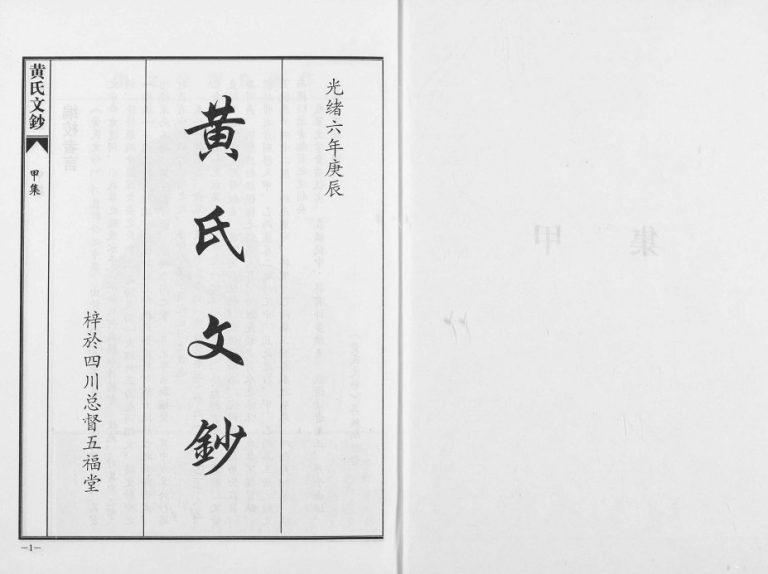 光绪六年庚辰
黄氏文鈔
梓於四川总督五福堂
黄氏文鈔
甲集
—1—
甲集